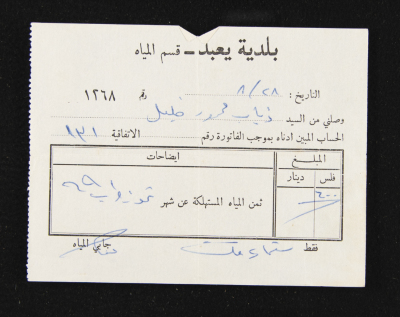 بلدية يعبد ـ قسم المياه
التاريخ : ٢٨ / ٨ رقم ١٢٦٨
وصلني من السيد ذياب محمود خليل
الحساب المبين ادناه بموجب الفاتورة رقم الاتفاقية ١٣١
المبلغ ايضاحات
فلس دينار
٦٠٠ ثمن المياه المستهلكة عن شهر تموز واب ٦٩
فقط ستماية فلس جابي المياه